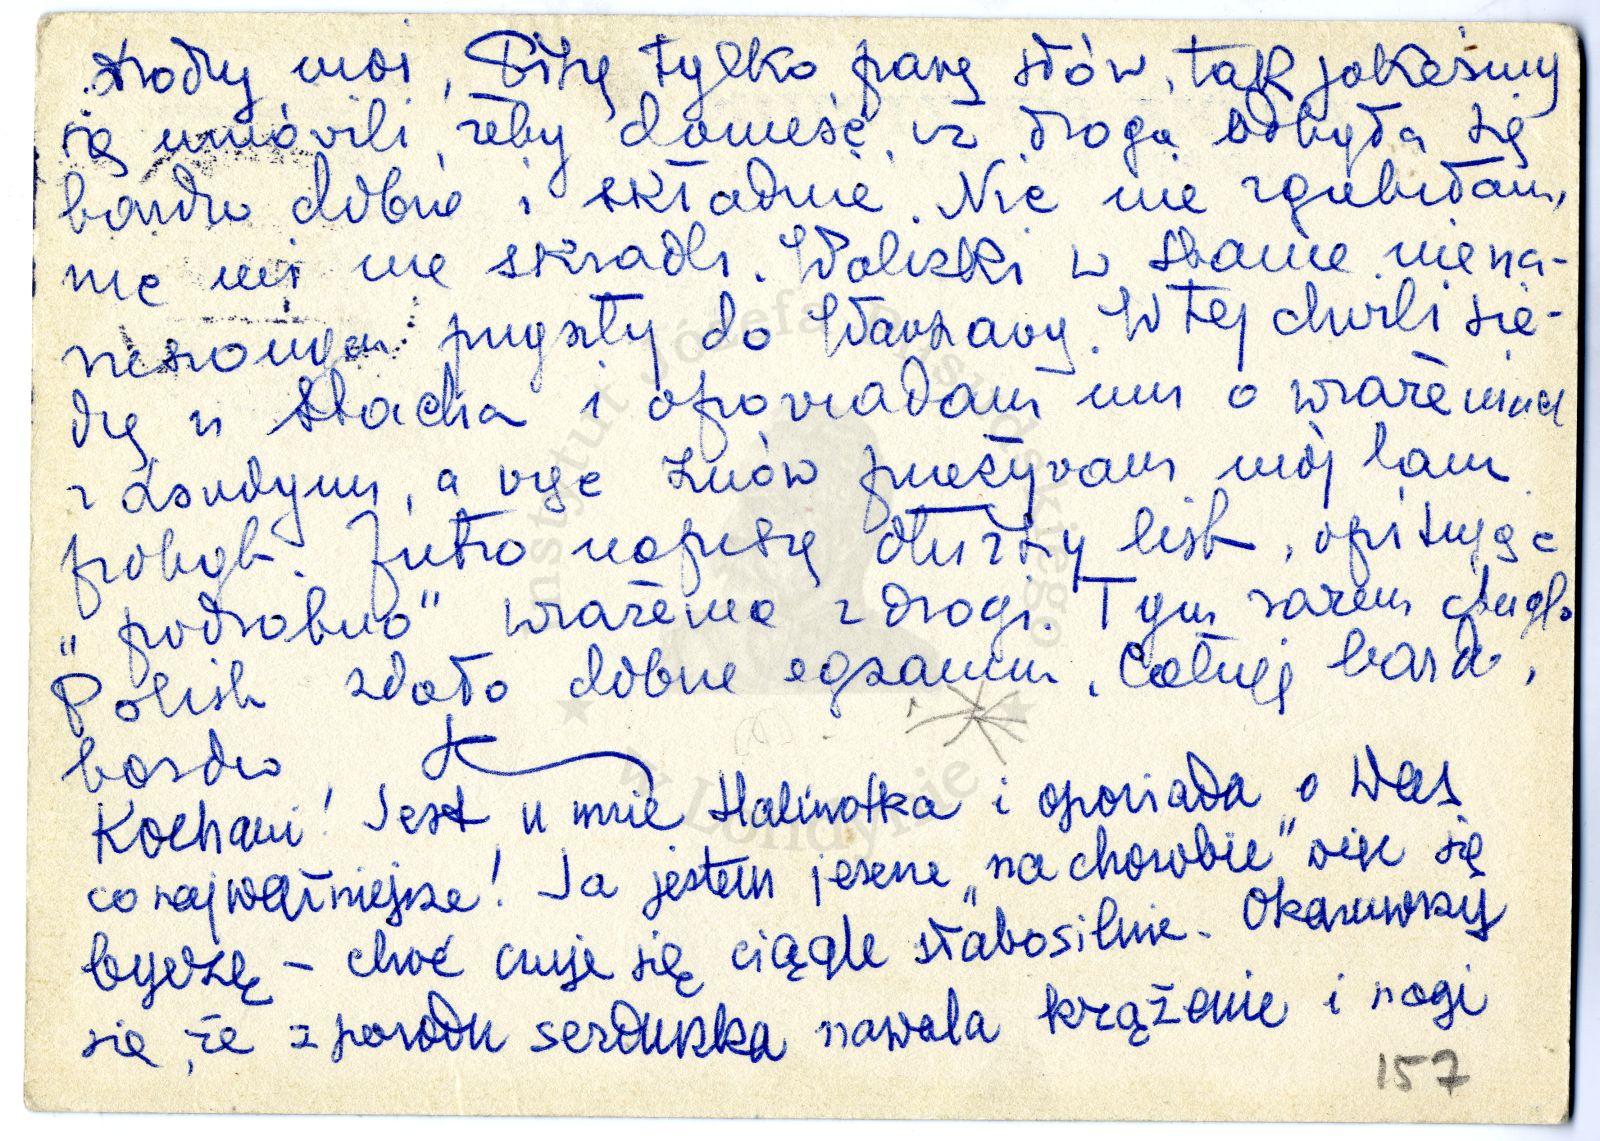 Drodzy moi, Piszę tylko parę słów, tak jakeśmy
się umówili, żeby donieść, iż droga odbyła się
bardzo dobrze i składnie. Nic nie zgubiłam,
nic mi nie skradli. Walizki w stanie niena-
ruszonym przyszły do Warszawy. W tej chwili sie-
dzę u Stacha i opowiadam mu o wrażeniach
z Londynu, a więc znów przeżywam mój tam
pobyt. Jutro napiszę dłuższy list, opisując
"podrobno" wrażenia z drogi. Tym razem Anglo
Polish zdało dobrze egzamin. Całuję bardzo,
bardzo, H
Kochani! Jest u mnie Halinotka i opowiada o Was
co najważniejsze! Ja jestem jeszcze "na chorobie" więc się
byczę – choć czuję się ciągle słabosilnie. Okazuje się
się, że z powodu serduszka nawala krążenie i nogi
157
Instytut Józefa Piłsudskiego
w Londynie